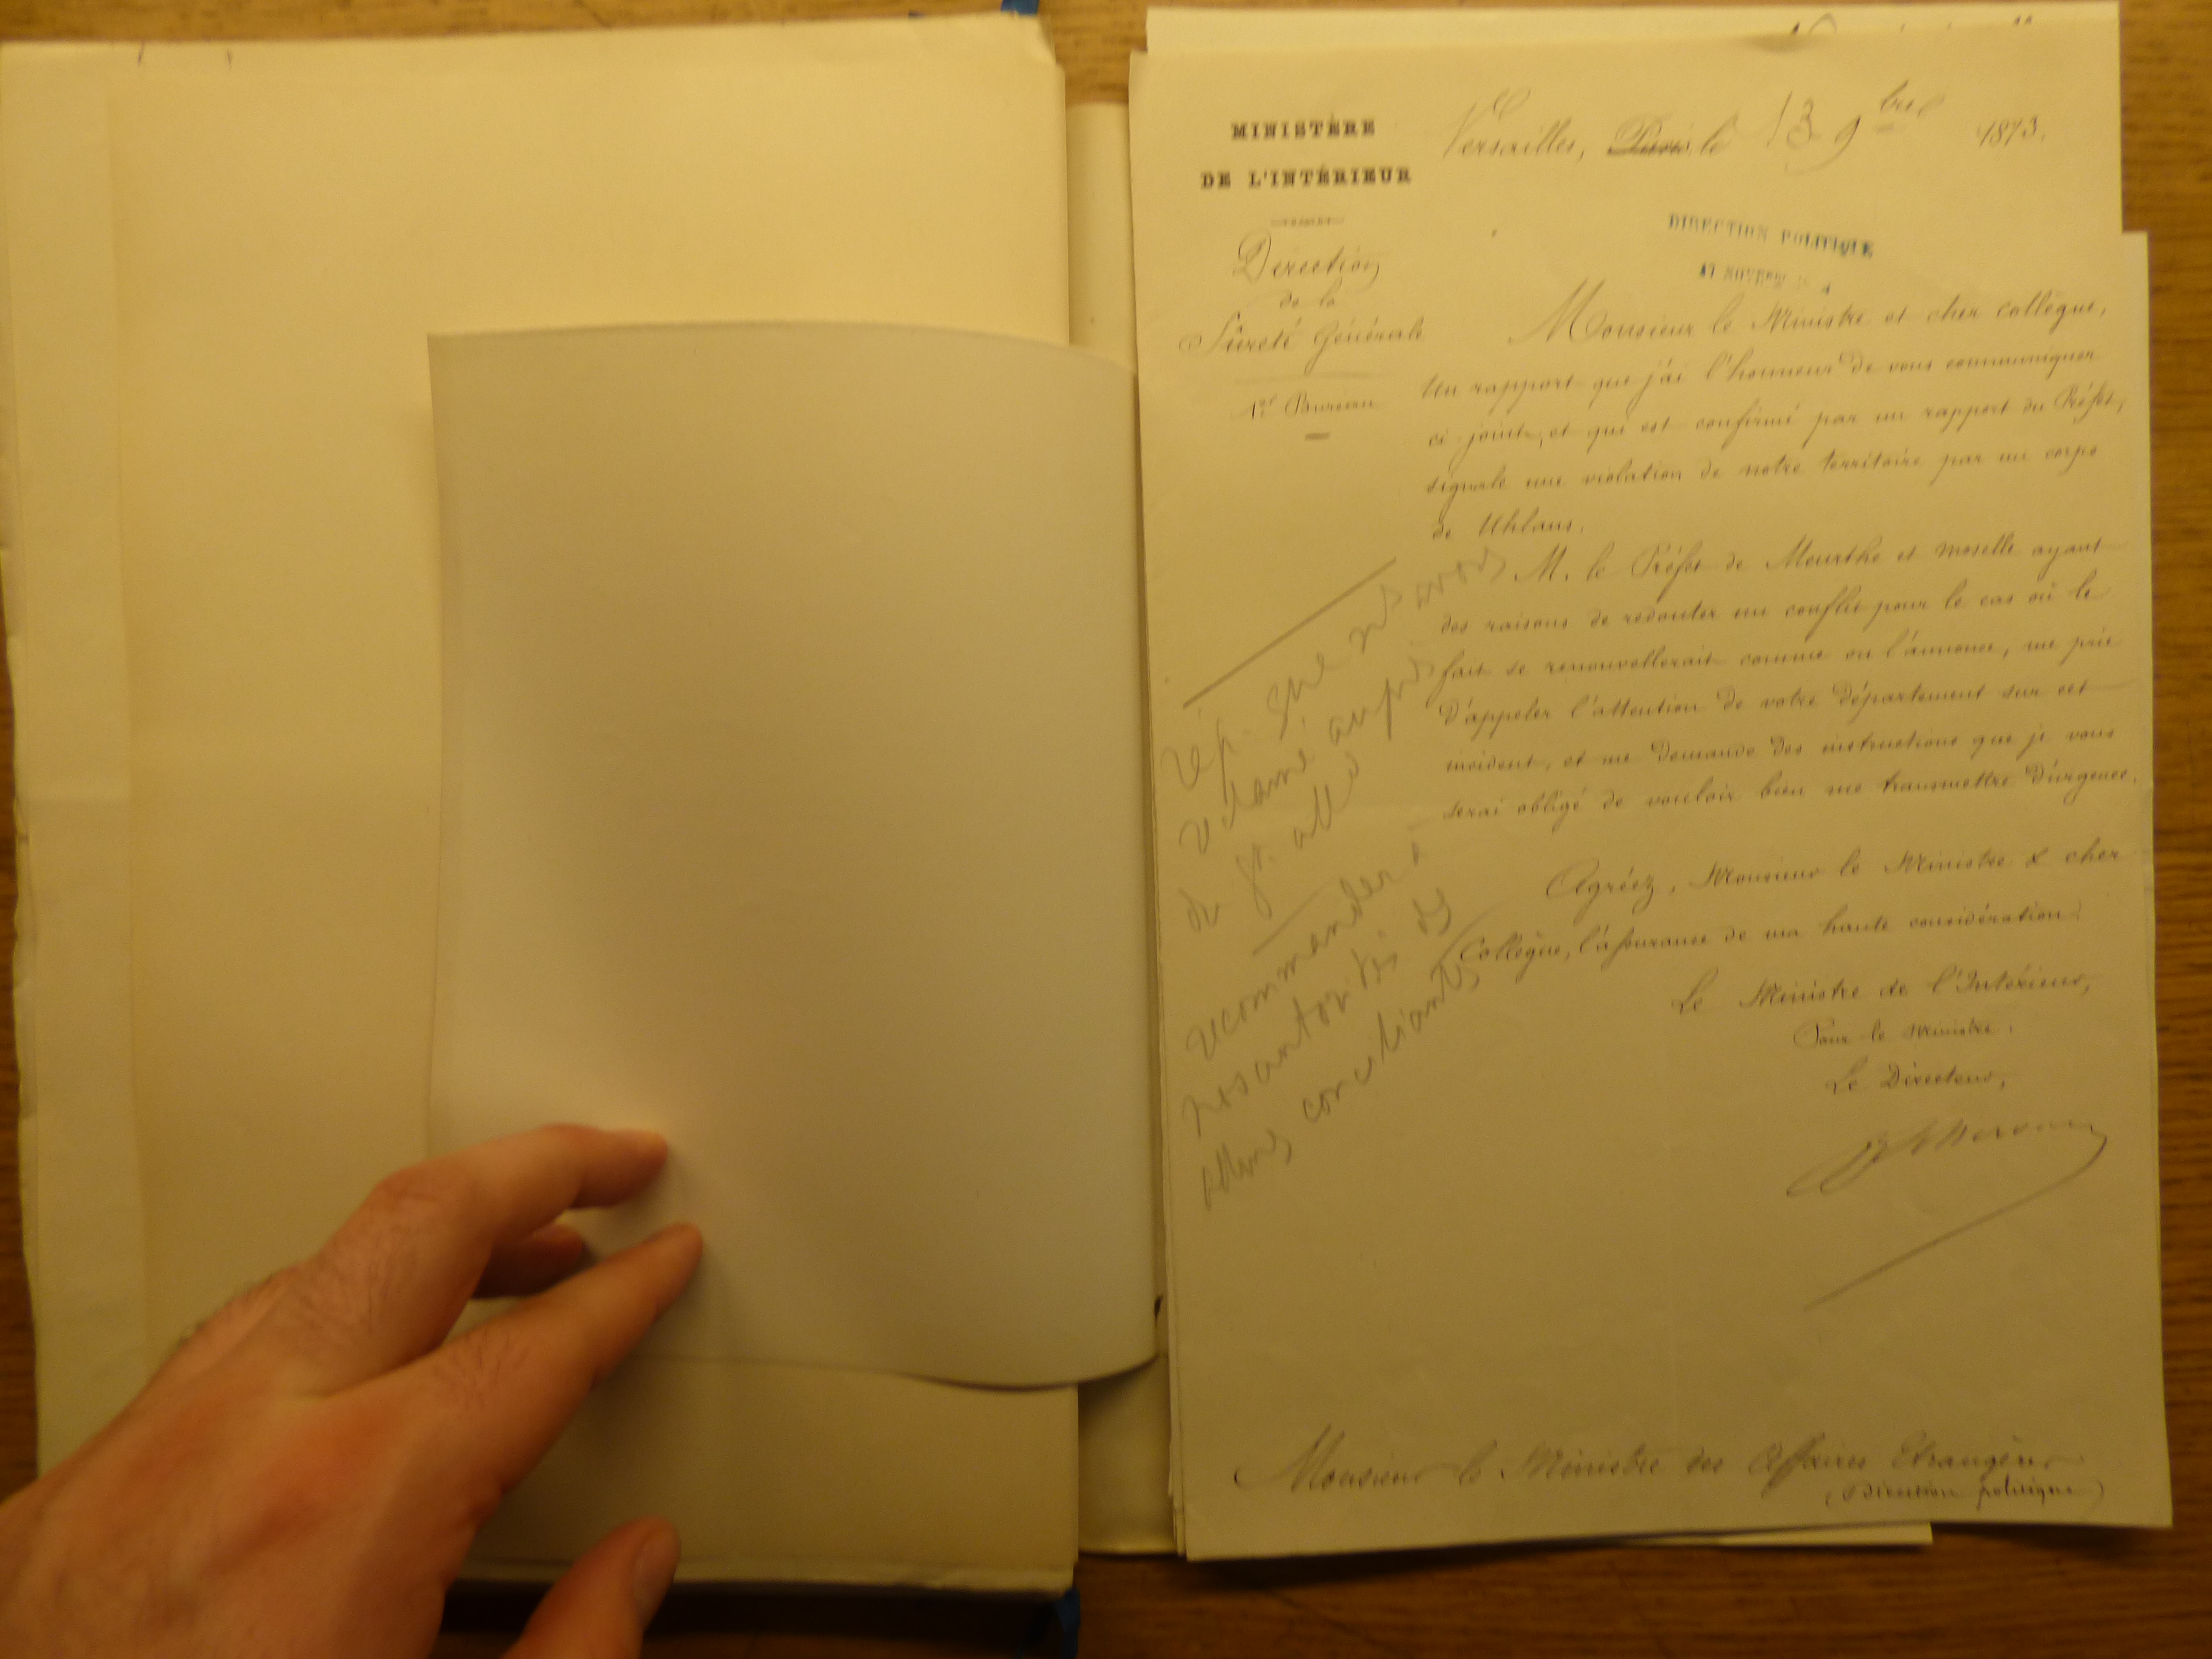 MINISTÈRE
DE L'INTÉRIEUR
Versailles, Paris, le 13 9bre 1873.
Direction
de la
Sûreté Générale
1er Bureau
DIRECTION POLITIQUE
17
Monsieur le Ministre et cher collègue,
Un rapport que j'ai l'honneur de vous communiquer
ci joint, et qui est confirmé par un rapport du Préfet,
signale une violation de notre territoire par un corps
de Uhlans.
M. le Préfet de Meurthe et moselle ayant
des raisons de redouter un conflit pour le cas où le
fait se renouvellerait comme on l'annonce, me prie
d'appeler l'attention de votre département sur cet
incident, et me demande des instructions que je vous
serai obligé de vouloir bien me transmettre d'urgence.
Agréez, Monsieur le Ministre & cher
Collègue, l'assurance de ma haute considération.
Le Ministre de l'Intérieur,
Pour le Ministre :
Le Directeur,
rép. que ns avons
réclamé auprès
du gt. alld
recommander à
nos autorités des
conciliantes
Monsieur le Ministre des Affaires Etrangères
(Direction politique)